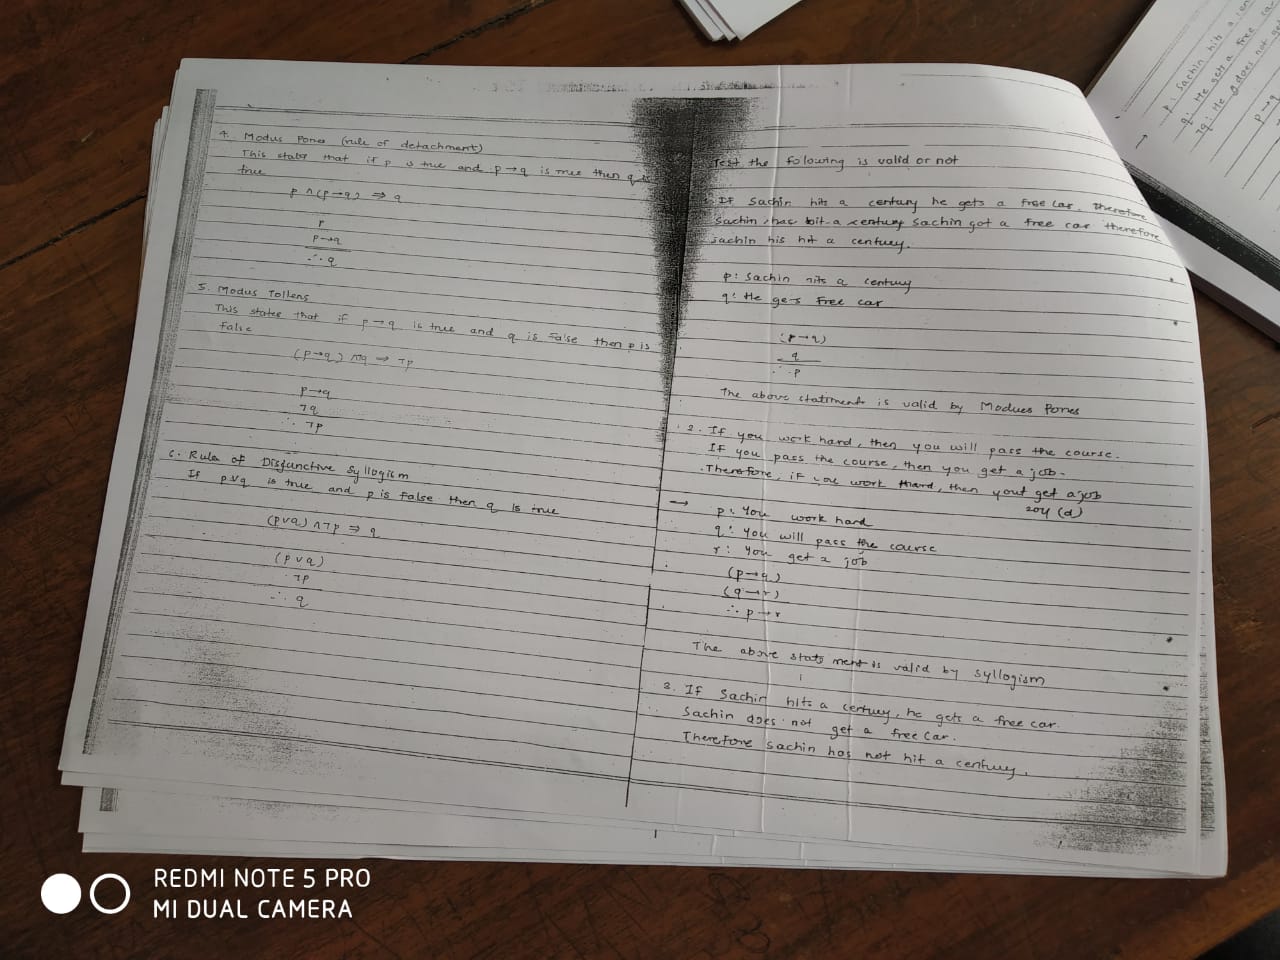 4. Modus Pones (rule of detachment)
This states that if p is true and p→q is true then q is
true
p ∧ (p→q) ⇒ q
p
p→q
∴ q
5. Modus Tollens
This states that if p→q is true and q is false then p is
false
(p→q) ∧ ¬q ⇒ ¬p
p→q
¬q
∴ ¬p
6. Rule of Disjunctive Syllogism
If p∨q is true and p is false then q is true
(p∨q) ∧ ¬p ⇒ q
(p∨q)
¬p
∴ q
Test the following is valid or not
If Sachin hits a century he gets a free car. therefore
Sachin has hit a century Sachin got a free car therefore
sachin his hit a century.
p: Sachin hits a century
q: He gets free car
(p→q)
q
∴ p
The above statiment is valid by Modues Pones
2. If you work hard, then you will pass the course.
If you pass the course, then you get a job.
Therefore, if you work hard, then yout get a job
→ p: You work hard
q: You will pass the course
r: You get a job
(p→q)
(q→r)
∴ p→r
The above statement is valid by syllogism
3. If Sachin hits a century, he gets a free car.
Sachin does not get a free car.
Therefore sachin has not hit a century.
p: Sachin hits a
q: He gets a free car
¬q: He does not
→
p→q
REDMI NOTE 5 PRO
MI DUAL CAMERA